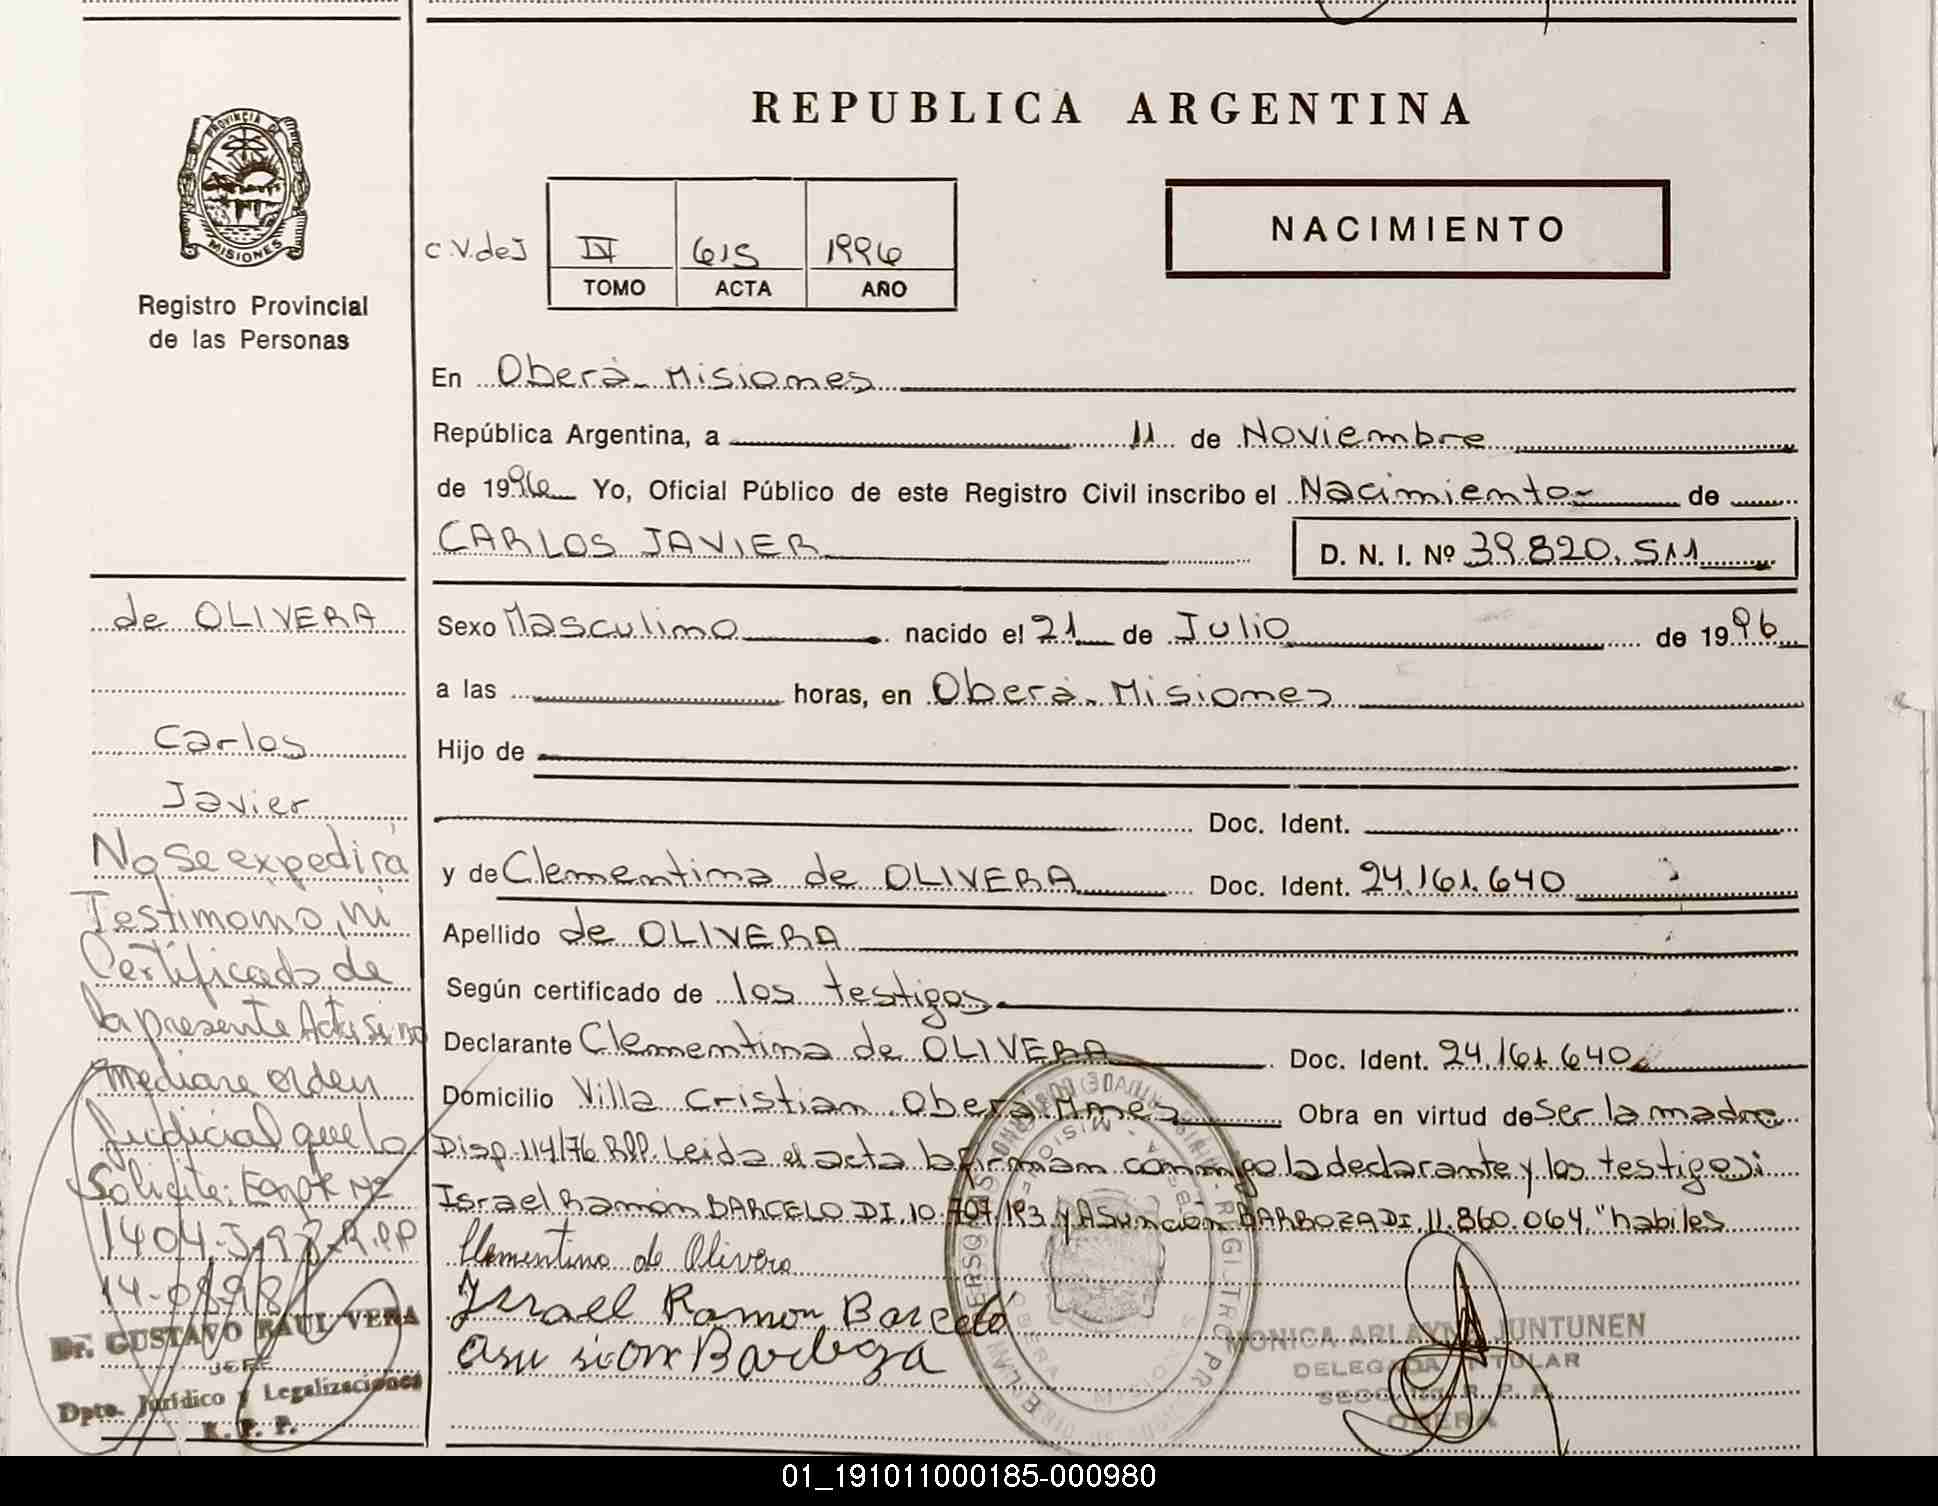 REPUBLICA ARGENTINA
PROVINCIA DE
MISIONES
Registro Provincial
de las Personas
C.V.deJ
IV 615 1996
TOMO ACTA AÑO
NACIMIENTO
En Oberá Misiones
República Argentina, a 11 de Noviembre
de 1996 Yo, Oficial Público de este Registro Civil inscribo el Nacimiento de
CARLOS JAVIER D. N. I. Nº 39.820.511
Sexo Masculino nacido el 21 de Julio de 1996
a las horas, en Oberá Misiones
Hijo de
Doc. Ident.
y de Clementina de OLIVERA Doc. Ident. 24.161.640
Apellido de OLIVERA
Según certificado de los testigos
Declarante Clementina de OLIVERA Doc. Ident. 24.161.640
Domicilio Villa Cristian Oberá Mnes Obra en virtud de ser la madre
Disp. 114/76 RPP. Leida el acta la firman conmigo la declarante y los testigos:
Israel Ramón BARCELO DI. 10.707.193 y Asunción BARBOZA DI. 11.860.064. "habiles
Clementina de Olivera
Israel Ramon Barceló
Asunsion Barboza
MONICA ARLAYNE JUNTUNEN
DELEGADA TITULAR
OBERA
de OLIVERA
Carlos
Javier
No se expedirá
Testimonio, ni
Certificado de
la presente Acta si no
mediare orden
Judicial que lo
Solicite: Expte Nº
1404-J-97-R.P.P
14-08-98
Dr. GUSTAVO RAUL VERA
JEFE
Dpto. Jurídico y Legalizaciones
R. P. P.
01_191011000185-000980